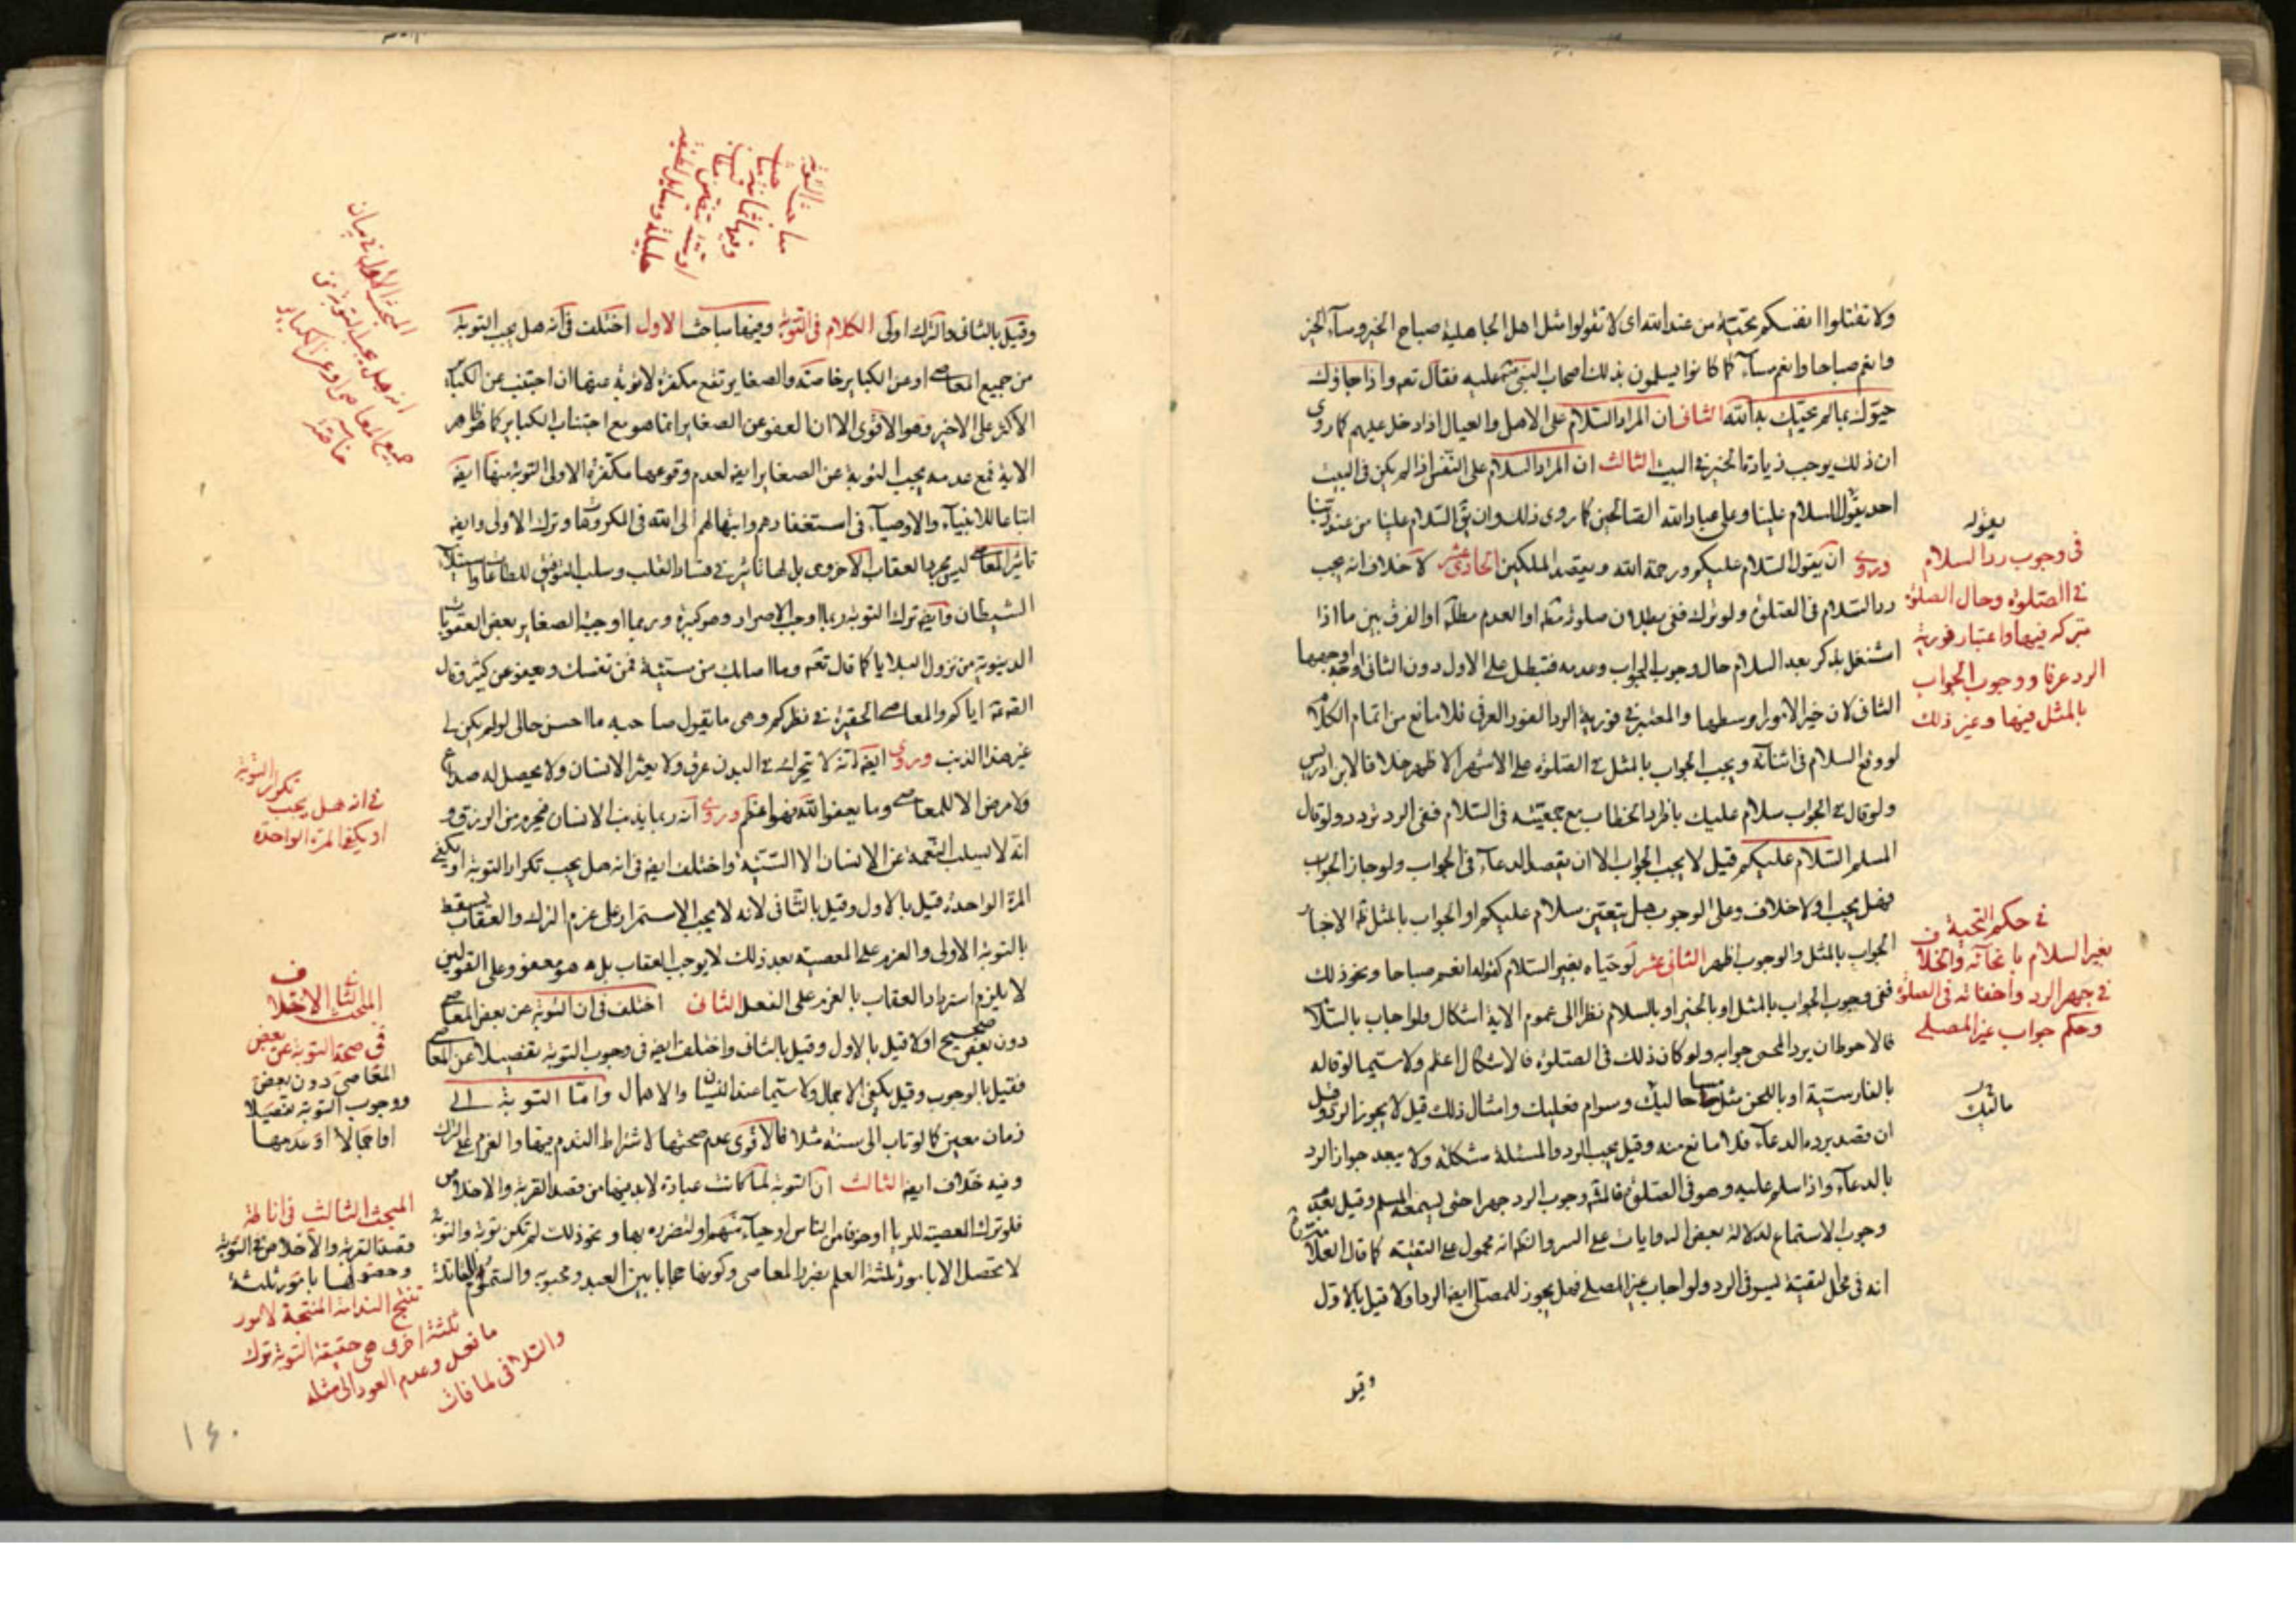 ولا تقتلوا انفسكم تحيّة من عند الله اى لا تقولوا مثل اهل الجاهلية صباح الخير ومسآء الخير
وانعم صباحا وانعم مسآء كما كانوا يسلمون بذلك اصحاب النبى عليه فقال تعم واذا جاؤك
حيّوك بما لم يحيّك به الله الثانى ان المراد السّلام على الاهل والعيال اذا دخل عليهم كما روى
ان ذلك يوجب زيادة الخير فى البيت الثالث ان المراد السلام على النّفس اذا لم يكن فى البيت
احد يقول السلام علينا وعلى عباد الله الصّالحين كما روى ذلك وان يق السّلام علينا من عند ربّنا
وروى ان يقول السّلام عليكم ورحمة الله ويقصد الملكين الحادى عشر لا خلاف انه يجب
ردّ السّلام فى الصّلوة ولو ترك ففى بطلان صلوته مطلقا او العدم مطلقا او الفرق بين ما اذا
اشتغل بذكر بعد السلام حال وجوب الجواب وعدمه فتبطل على الاول دون الثانى اوجهها
الثانى لان خير الامور اوسطها والمعتبر فى فورية الرد الفور العرفى فلا مانع من اتمام الكلام
لو وقع السلام فى اثنآئه ويجب الجواب بالمثل فى الصّلوة على الاشهر الاظهر خلافا لابن ادريس
ولو قال فى الجواب سلام عليك بافراد الخطاب مع جمعيّته فى السّلام ففى الرد تردد ولو قال
المسلم السّلام عليكم قيل لا يجب الجواب الا ان يقصد الدعآء فى الجواب ولو جاز الجواب
فهل يجب او لا خلاف وعلى الوجوب هل يتعيّن سلام عليكم او الجواب بالمثل
الجواب بالمثل والوجوب اظهر الثانى عشر لو حيّاه بغير السّلام كقوله انعم صباحا ونحو ذلك
ففى وجوب الجواب بالمثل او بالخير او بالسلام نظرا الى عموم الاية اشكال ولو اجاب بالسّلام
فالاحوط ان يرد المحيى جوابه ولو كان ذلك فى الصّلوة فالاشكال اعظم ولا سيّما لو قاله
بالفارسيّة او باللحن مثل حاليك وسوام معليك وامثال ذلك قيل لا يجوز الرد وقيل
ان قصد برده الدعآء فلا مانع منه وقيل يجب الرد والمسئلة مشكلة ولا يبعد جواز الرد
بالدعآء واذا سلم عليه وهو فى الصّلوة فالمشهور وجوب الرد جهرا حتى يسمعه المسلم وقيل بعدم
وجوب الاستماع لدلالة بعض الروايات على السر والظم انه محمول على التقيّة كما قال العلامة
انه فى محل التقيّة ليسوغ الرد ولو اجاب غير المصلى فهل يجوز للمصلى ايضا الرد او لا قيل بالاول
يقوله
فى وجوب رد السلام
فى الصّلوة وحال الصلوة
بتركه فيها واعتبار فورية
الرد عرفا ووجوب الجواب
بالمثل فيها وغير ذلك
فى حكم التحية
بغير السلام بانحآئه والخلاف
فى جهر الرد واخفاته فى الصلوة
وحكم جواب غير المصلى
ماليك
وقيل بالثانى والترك اولى الكلام فى التوبة وفيها مباحث الاول اختلف فى انه هل يجب التوبة
من جميع المعاصى او عن الكباير خاصّة والصغاير تقع مكفرة لا توبة عنها ان اجتنب عن الكباير
الاكثر على الاخير وهو الاقوى الا ان العفو عن الصغاير انما هو مع اجتناب الكباير كما هو ظاهر
الاية فمع عدمه يجب التوبة عن الصغاير ايضا لعدم وقوعها مكفرة الاولى التوبة منها ايضا
اتباعا للانبيآء والاوصيآء فى استغفارهم وابتهالهم الى الله فى المكروهات وترك الاولى وايضا
تاثير المعاصى ليس مجرد العقاب الاخروى بل لها تاثير فى فساد القلب وسلب التوفيق للطاعات واستيلاء
الشيطان وايضا ترك التوبة ربما اوجب الاصرار وهو كبيرة وربما اوجبه الصغاير بعض العقوبات
الدنيوية من نزول البلايا كما قال تعم وما اصابك من سيّئة فمن نفسك ويعفو عن كثير وقال
اياكم والمعاصى الحقيرة فى نظركم وهى ما يقول صاحبه ما احسن حالى لو لم يكن لى
غير هذا الذنب وروى ايضا انه لا يتحرك فى البدن عرق ولا يعثر الانسان ولا يحصل له صداع
ولا مرض الا للمعاصى وما يعفو الله وروى انه ربما يذنب الانسان فيحرم من الرزق و
انه لا يسلب النّعمة عن الانسان الا السّيّئة واختلف ايضا فى انه هل يجب تكرار التوبة او يكفى
المرة الواحدة قيل بالاول وقيل بالثانى لانه لا يجب الاستمرار على عزم الترك والعقاب يسقط
بالتوبة الاولى والعزم على المعصية بعد ذلك لا يوجب العقاب بل هو معفو وعلى القولين
لا يلزم استرداد العقاب بالعزم على الفعل الثانى اختلف فى ان التوبة عن بعض المعاصى
دون بعض صحيح او لا قيل بالاول وقيل بالثانى واختلف ايضا فى وجوب التوبة تفصيلا عن المعاصى
فقيل بالوجوب وقيل يكفى الاجمال ولا سيّما عند النسيان والاهمال وامّا التوبة الى
زمان معين كما لو تاب الى سنة مثلا فالاقوى عدم صحتها لاشتراط الندم فيها والعزم على الترك
وفيه خلاف ايضا الثالث ان التوبة لما كانت عبادة لابد فيها من قصد القربة والاخلاص
فلو ترك المعصية للريا او خوفا من النّاس او حيآء منهم او لتضرره بها ونحو ذلك لم تكن توبة والتوبة
لا تحصل الا بامور ثلثة العلم بضرر المعاصى وكونها حجابا بين العبد ومحبوبه والسّموم القاتلة
مباحث التوبة
المبحث الاول فى بيان
انه هل يجب التوبة عن
جميع المعاصى او عن الكباير
خاصّة
فى انه هل يجب تكرار التوبة
او يكفى المرة الواحدة
المبحث الثانى الاختلاف
فى صحة التوبة عن بعض
المعاصى دون بعض
ووجوب التوبة تفصيلا
او اجمالا او عدمها
المبحث الثالث فى اناطة
قصد القربة والاخلاص فى التوبة
وحصولها بامور ثلثة
تنتج الندامة المنتجة لامور
ثلثة اخرى هى حقيقة التوبة ترك
ما فعل وعدم العود الى مثله
والتلافى لما فات
١٤٠